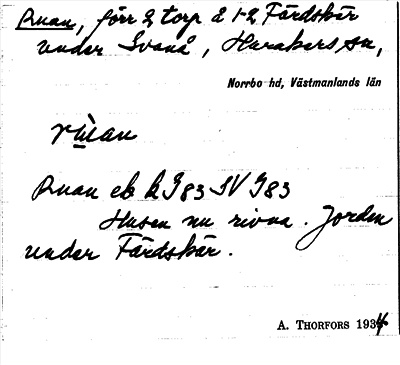 Ruan, förr 2 torp å 1-2 Färdskär
under Svanå, Harakers sn,
Norrbo hd, Västmanlands län
Ruan eb k J 83 SV J 83
Husen nu rivna. Jorden
under Färdskär.
A. THORFORS 1934